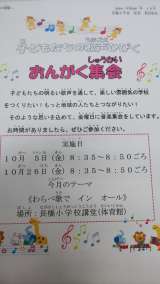 子どもたちの歌声ひびく
しゅうかい
おんがく集会
子どもたちの明るい歌声を通して、楽しい雰囲気の学校
をつくりたい！もっと地域の人たちとつながりたい！
そのような思いをこめて、金曜日に音楽集会をしています。
お時間がありましたら、ぜひご参加ください。
実施日
10月 5日(金) 8：35～8：50ごろ
10月26日(金) 8：35～8：50ごろ
今月のテーマ
《わらべ歌で イン オール》
場所：長橋小学校講堂(体育館)